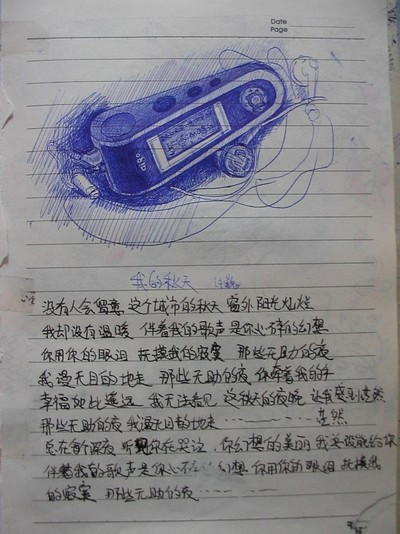 Date
Page
我的秋天 许巍
没有人会留意 这个城市的秋天 窗外阳光灿烂
我却没有温暖 伴着我的歌声 是你心碎的幻想
你用你的眼泪 抚摸我的寂寞 那些无助的夜
我漫无目的地走 那些无助的夜 你牵着我的手
幸福如此遥远 我无法看见 这秋天的夜晚 让我感到茫然
那些无助的夜 我漫无目的地走…… 茫然
总在每个深夜 听见你在哭泣 你幻想的美丽 我 给你
伴着我的歌声 是你心 幻想 你用你的眼泪 抚摸我
的寂寞 那些无助的夜……